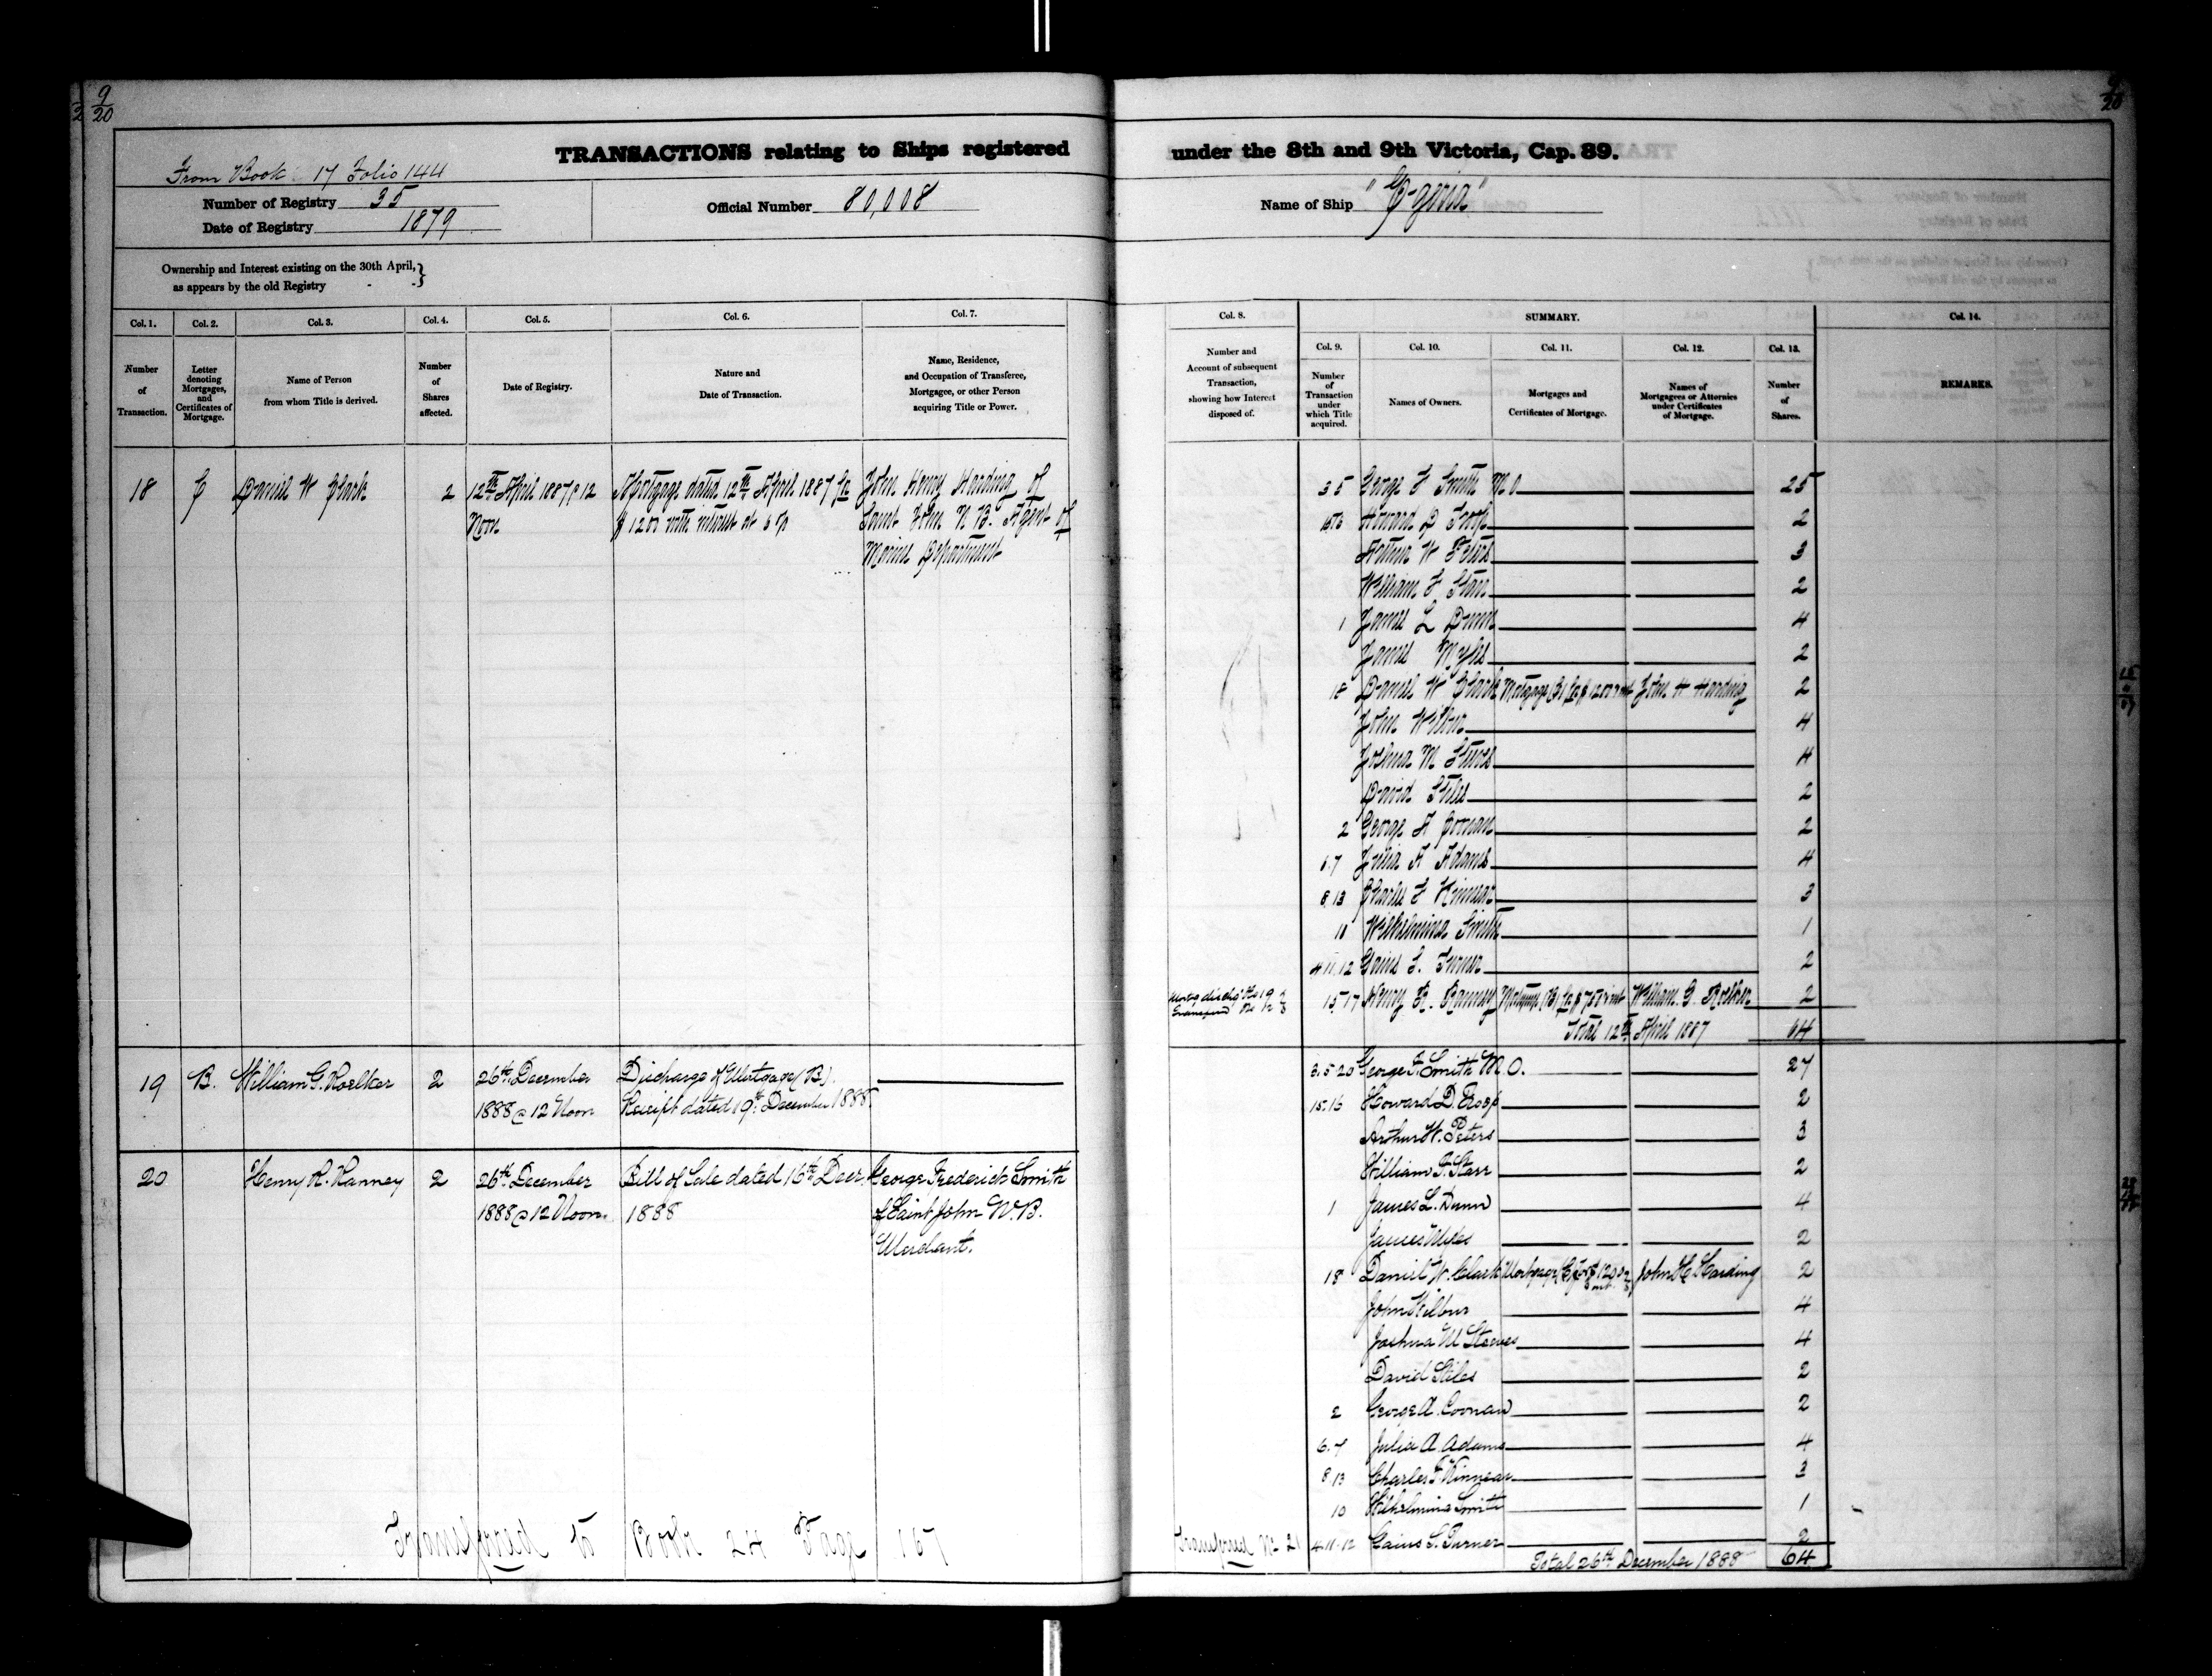 9/20
TRANSACTIONS relating to Ships registered under the 8th and 9th Victoria, Cap. 89.
From Book 17 Folio 144
Number of Registry 35
Date of Registry 1879
Official Number 80,008
Name of Ship "Egeria"
Ownership and Interest existing on the 30th April,
as appears by the old Registry
Col. 1. Col. 2. Col. 3. Col. 4. Col. 5. Col. 6. Col. 7.
Number of Transaction.
Letter denoting Mortgages, and Certificates of Mortgage.
Name of Person from whom Title is derived.
Number of Shares affected.
Date of Registry.
Nature and Date of Transaction.
Name, Residence, and Occupation of Transferee, Mortgagee, or other Person acquiring Title or Power.
18 C Daniel W Clark 2 12th April 1887 @ 12 Mortgage dated 12th April 1887 for John Henry Harding of
Noon $1200 with interest at 6 % Saint John N B. Agent of
Marine Department
19 B. William G. Roelker 2 26th December Discharge of Mortgage (B).
1888 @ 12 Noon Receipt dated 19th December 1888
20 Henry R. Ranney 2 26th December Bill of Sale dated 16th Decr. George Frederick Smith
1888 @ 12 Noon 1888 of Saint John N.B.
Merchant.
Transferred to Book 24 Page 167
9/20
Col. 8. SUMMARY. Col. 14.
Col. 9. Col. 10. Col. 11. Col. 12. Col. 13.
Number and Account of subsequent Transaction, showing how Interest disposed of.
Number of Transaction under which Title acquired.
Names of Owners.
Mortgages and Certificates of Mortgage.
Names of Mortgagees or Attornies under Certificates of Mortgage.
Number of Shares.
REMARKS.
3 5 George F Smith M O 25
Howard D Troop 2
Arthur W Peters 3
William F Starr 2
1 James L Dunn 4
James Myles 2
18 Daniel W Clark Mortgage for $1200 John H Harding 2
John Wilbur 4
Joshua M Steeves 4
David Stiles 2
2 George A Coonan 2
6.7 Julia A Adams 4
8,13 Charles F Kinnear 3
10 Wilhelmina Smith 1
4.11.12 Gaius S. Turner 2
15.17 Henry R. Ranney Mortgage (B) for William G Roelker 2
Total 12th April 1887 64
3.5.20 George F. Smith M.O. 27
15.16 Howard D. Troop 2
Arthur W. Peters 3
William F. Starr 2
1 James L. Dunn 4
James Myles 2
18 Daniel W. Clark Mortgage (C) for $1200 John H Harding 2
John Wilbur 4
Joshua M Steeves 4
David Stiles 2
2 George A. Coonan 2
6.7 Julia A. Adams 4
8.13 Charles F. Kinnear 3
10 Wilhelmina Smith 1
Transferred No 21 4.11.12 Gaius S. Turner 2
Total 26th December 1888 64